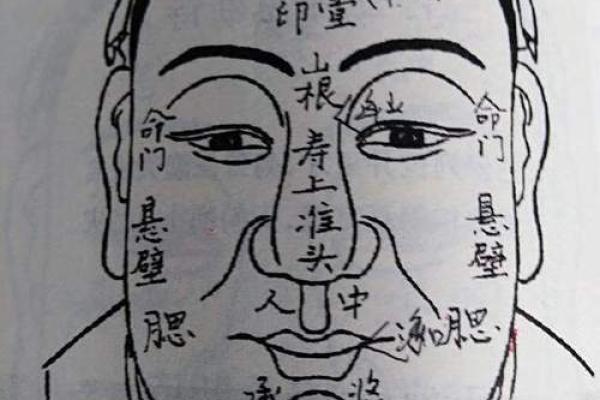 印堂
山根
命门
命门
寿上
准头
悬壁
悬壁
人中
腮
腮
承浆